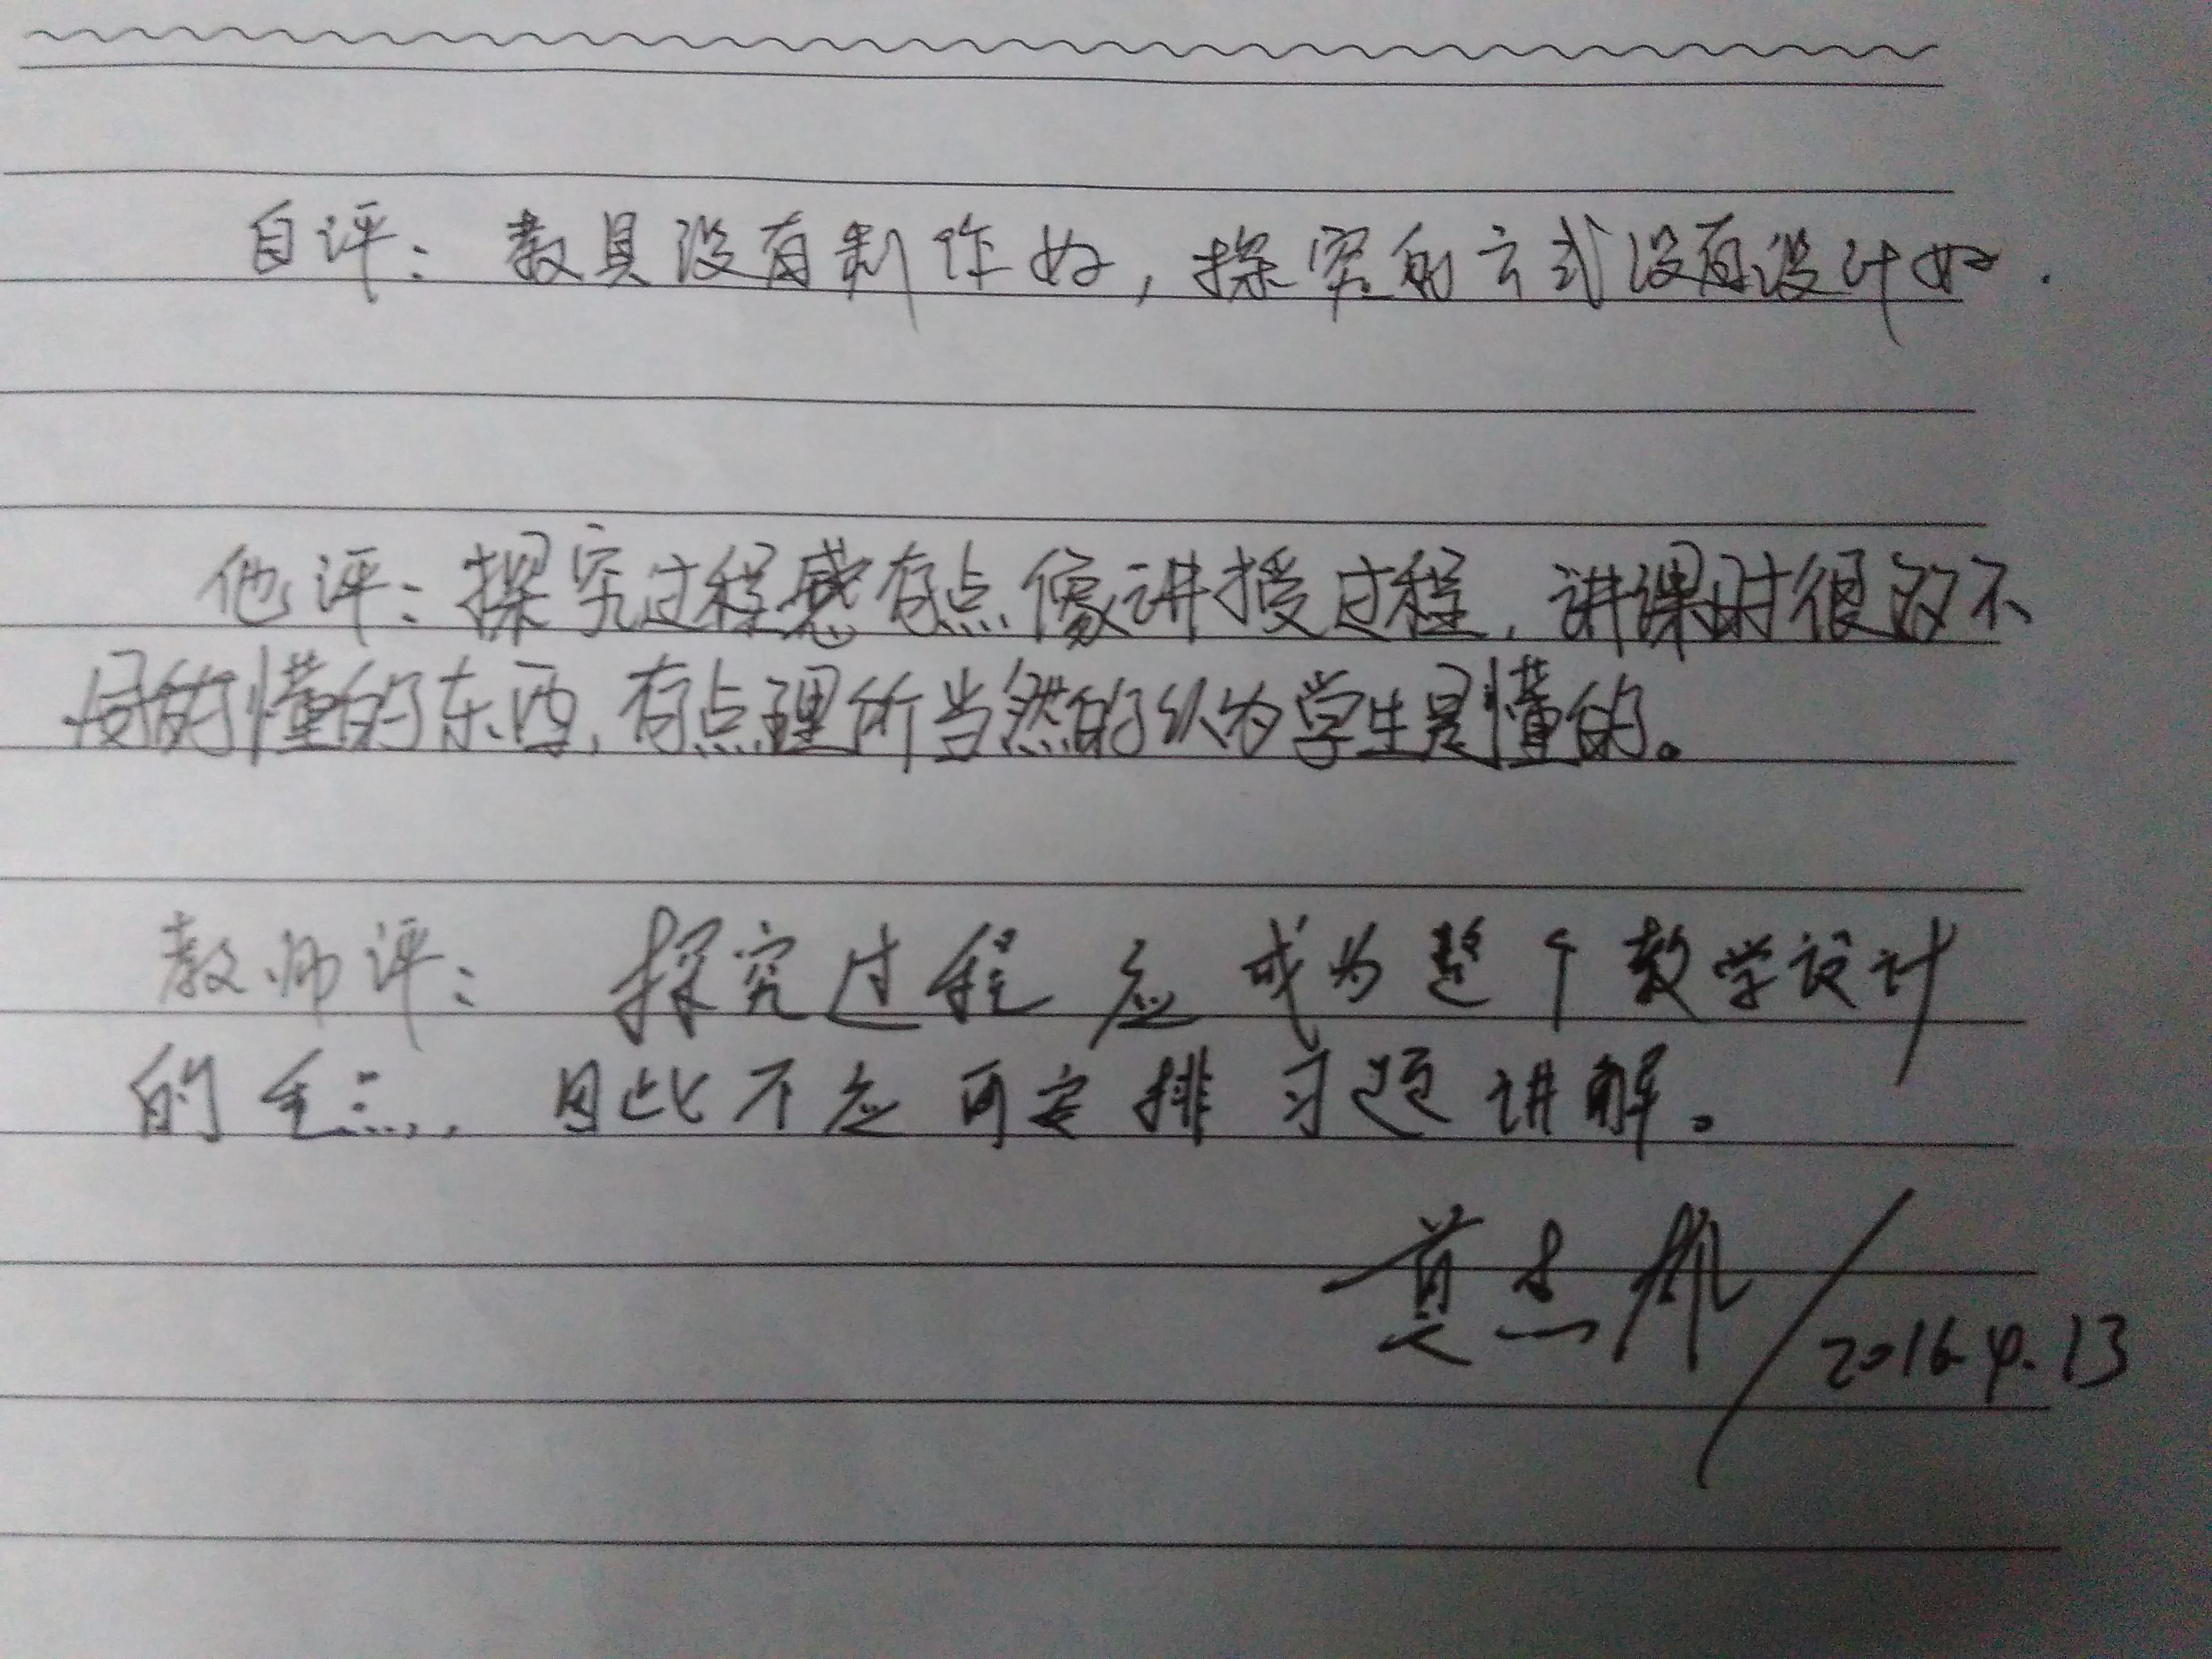 自评：教具没有制作好，探究的方式没有设计好.
他评：探究过程感有点像讲授过程，讲课时很多不
懂的东西，有点理所当然的认为学生是懂的。
教师评：探究过程应成为整个教学设计
的重点，因此不应再安排习题讲解。
2016.4.13